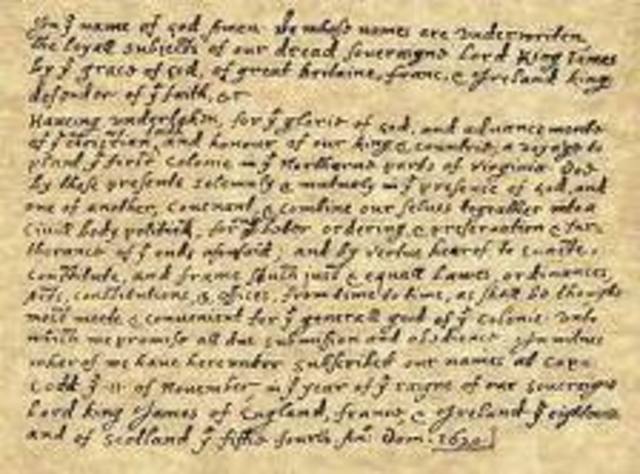 In ẙ name of god Amen. We whose names are underwriten,
the loyall subjects of our dread soveraigne Lord King James
by ẙ grace of god, of great Britaine, franc, & Ireland king,
defender of ẙ faith, &c
Haveing undertaken, for ẙ glorie of god, and advancemente
of ẙ christian faith and honour of our king & countrie, a voyage to
plant ẙ first colonie in ẙ Northerne parts of Virginia. Doe
by these presents solemnly & mutualy in ẙ presence of god, and
one of another, covenant, & combine our selves togeather into a
civill body politick, for our better ordering, & preservation & fur-
therance of ẙ ends aforesaid; and by vertue hearof to enacte,
constitute, and frame such just & equall lawes, ordinances,
Acts, constitutions, & offices, from time to time, as shall be thought
most meete & convenient for ẙ generall good of ẙ colonie: unto
which we promise all due submission and obedience. In witnes
wherof we have hereunder subscribed our names at Cape
Codd ẙ 11 of November, in ẙ year of ẙ raigne of our soveraigne
Lord king James of England, franc, & Ireland ẙ eighteenth
and of Scotland ẙ fiftie fourth. An: Dom. 1620.]